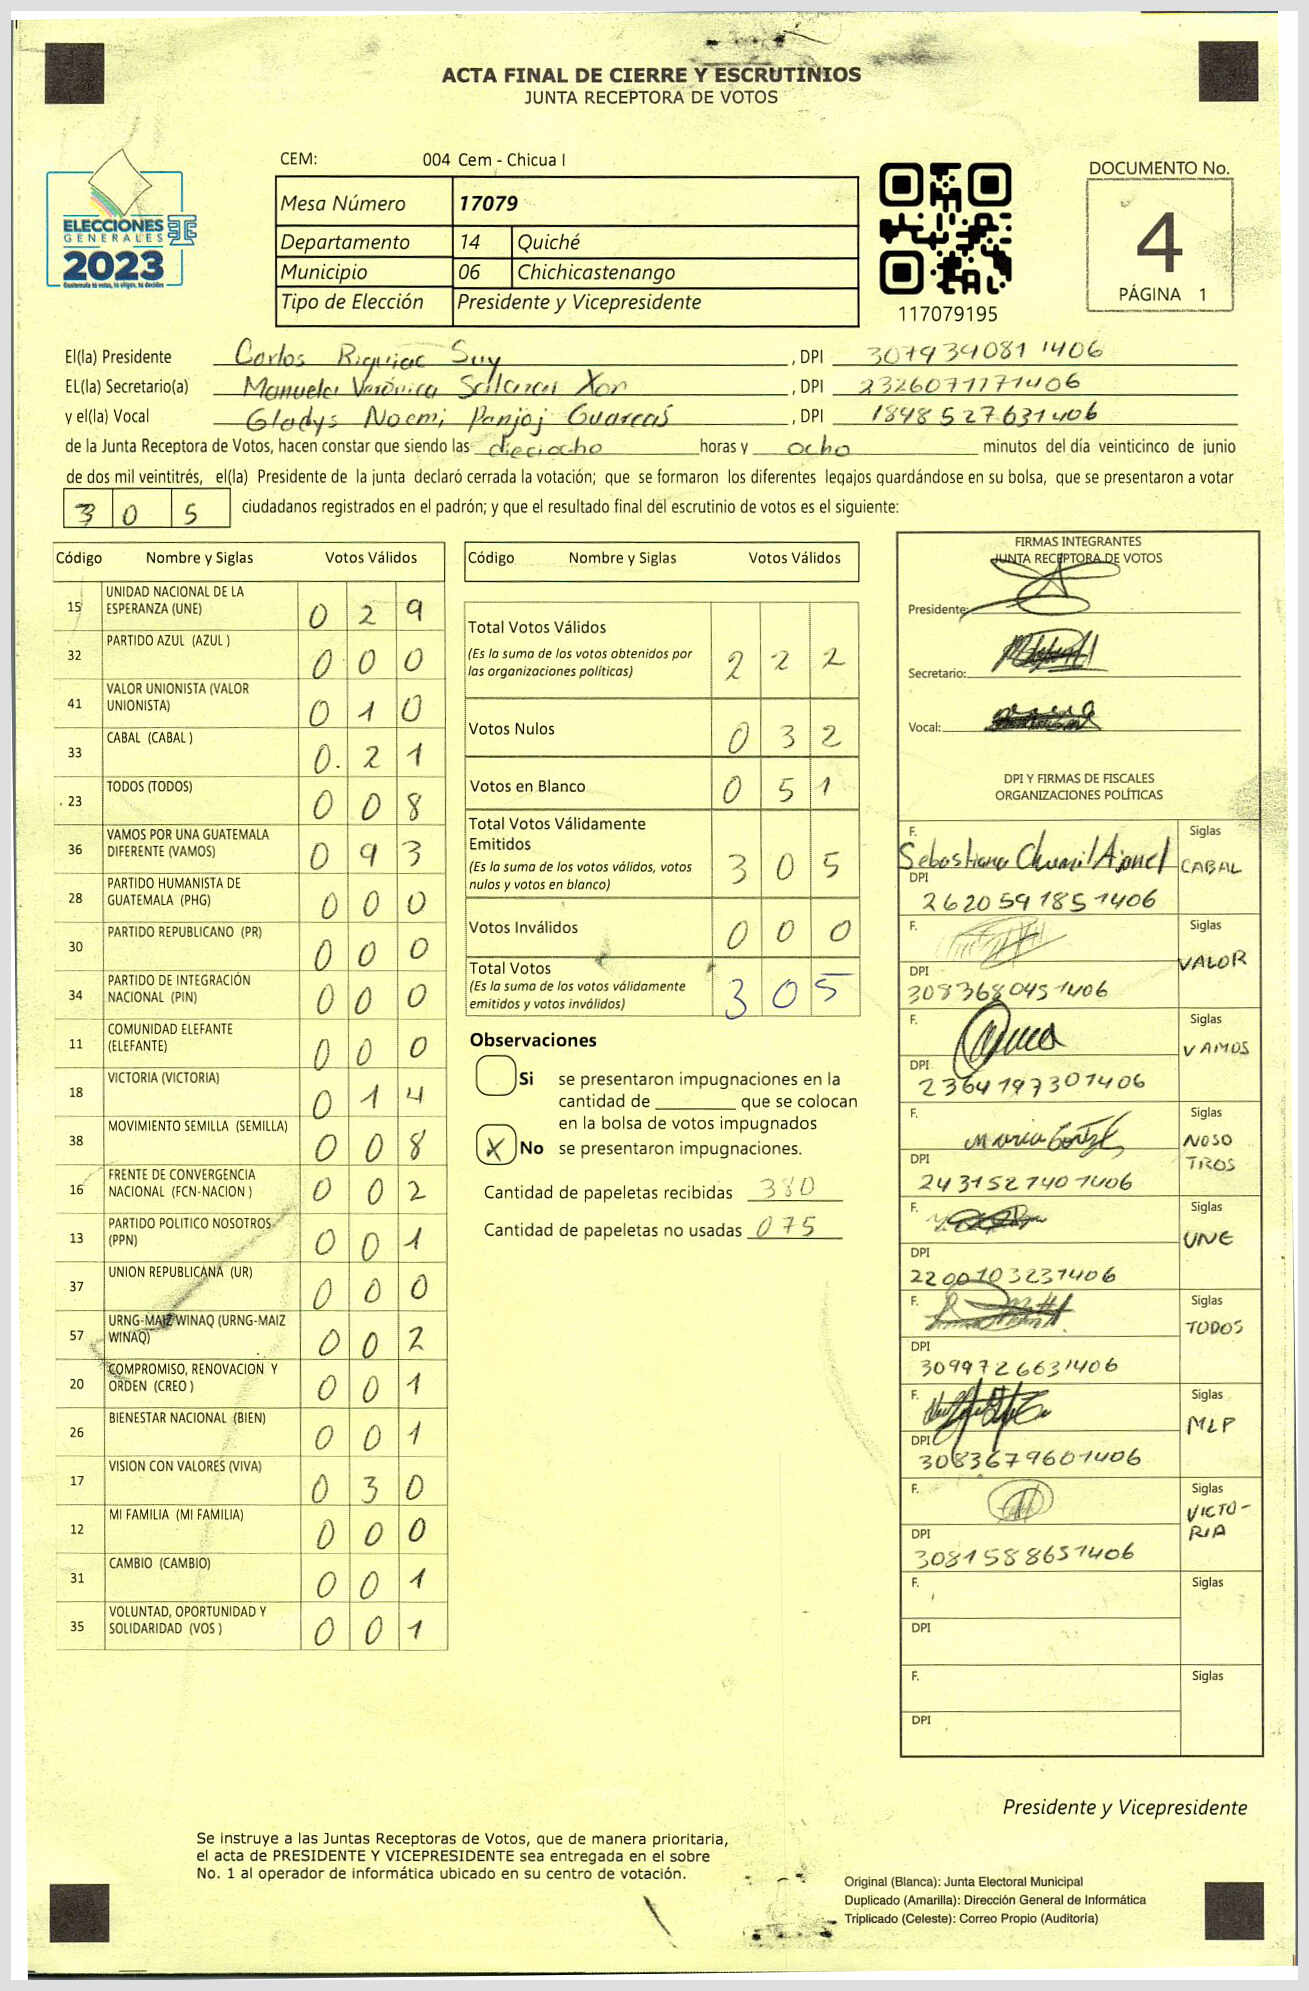 ACTA FINAL DE CIERRE Y ESCRUTINIOS
JUNTA RECEPTORA DE VOTOS
CEM: 004 Cem - Chicua I
ELECCIONES
GENERALES
2023
Guatemala tú votas, tú eliges, tú decides
Mesa Número 17079
Departamento 14 Quiché
Municipio 06 Chichicastenango
Tipo de Elección Presidente y Vicepresidente
117079195
DOCUMENTO No.
4
PÁGINA 1
El(la) Presidente Carlos Riquiac Suy , DPI 3079390811406
EL(la) Secretario(a) Manuela Verónica Salazar Xon , DPI 2326071171406
y el(la) Vocal Gladys Noemi Panjoj Guarcas , DPI 1848527631406
de la Junta Receptora de Votos, hacen constar que siendo las dieciocho horas y ocho minutos del día veinticinco de junio
de dos mil veintitrés, el(la) Presidente de la junta declaró cerrada la votación; que se formaron los diferentes legajos guardándose en su bolsa, que se presentaron a votar
305 ciudadanos registrados en el padrón; y que el resultado final del escrutinio de votos es el siguiente:
Código Nombre y Siglas Votos Válidos
15 UNIDAD NACIONAL DE LA ESPERANZA (UNE) 0 2 9
32 PARTIDO AZUL (AZUL ) 0 0 0
41 VALOR UNIONISTA (VALOR UNIONISTA) 0 1 0
33 CABAL (CABAL ) 0. 2 1
23 TODOS (TODOS) 0 0 8
36 VAMOS POR UNA GUATEMALA DIFERENTE (VAMOS) 0 9 3
28 PARTIDO HUMANISTA DE GUATEMALA (PHG) 0 0 0
30 PARTIDO REPUBLICANO (PR) 0 0 0
34 PARTIDO DE INTEGRACIÓN NACIONAL (PIN) 0 0 0
11 COMUNIDAD ELEFANTE (ELEFANTE) 0 0 0
18 VICTORIA (VICTORIA) 0 1 4
38 MOVIMIENTO SEMILLA (SEMILLA) 0 0 8
16 FRENTE DE CONVERGENCIA NACIONAL (FCN-NACION ) 0 0 2
13 PARTIDO POLITICO NOSOTROS (PPN) 0 0 1
37 UNION REPUBLICANA (UR) 0 0 0
57 URNG-MAIZ WINAQ (URNG-MAIZ WINAQ) 0 0 2
20 COMPROMISO, RENOVACION Y ORDEN (CREO ) 0 0 1
26 BIENESTAR NACIONAL (BIEN) 0 0 1
17 VISION CON VALORES (VIVA) 0 3 0
12 MI FAMILIA (MI FAMILIA) 0 0 0
31 CAMBIO (CAMBIO) 0 0 1
35 VOLUNTAD, OPORTUNIDAD Y SOLIDARIDAD (VOS ) 0 0 1
Código Nombre y Siglas Votos Válidos
Total Votos Válidos
(Es la suma de los votos obtenidos por
las organizaciones políticas) 2 2 2
Votos Nulos 0 3 2
Votos en Blanco 0 5 1
Total Votos Válidamente
Emitidos
(Es la suma de los votos válidos, votos
nulos y votos en blanco) 3 0 5
Votos Inválidos 0 0 0
Total Votos
(Es la suma de los votos válidamente
emitidos y votos inválidos) 3 0 5
Observaciones
Si se presentaron impugnaciones en la
cantidad de ________ que se colocan
en la bolsa de votos impugnados
X No se presentaron impugnaciones.
Cantidad de papeletas recibidas 380
Cantidad de papeletas no usadas 075
FIRMAS INTEGRANTES
JUNTA RECEPTORA DE VOTOS
Presidente:
Secretario:
Vocal:
DPI Y FIRMAS DE FISCALES
ORGANIZACIONES POLÍTICAS
F. Sebastiana Siglas
CABAL
DPI
2620591851406
F. Siglas
VALOR
DPI
3083680451406
F. Siglas
VAMOS
DPI
2364197301406
F. Maria Siglas
NOSO
TROS
DPI
2431527401406
F. Siglas
UNE
DPI
2200103231406
F. Siglas
TODOS
DPI
3099726631406
F. Siglas
MLP
DPI
3083679601406
F. Siglas
VICTO-
RIA
DPI
3081588651406
F. Siglas
DPI
F. Siglas
DPI
Presidente y Vicepresidente
Se instruye a las Juntas Receptoras de Votos, que de manera prioritaria,
el acta de PRESIDENTE Y VICEPRESIDENTE sea entregada en el sobre
No. 1 al operador de informática ubicado en su centro de votación.
Original (Blanca): Junta Electoral Municipal
Duplicado (Amarilla): Dirección General de Informática
Triplicado (Celeste): Correo Propio (Auditoría)